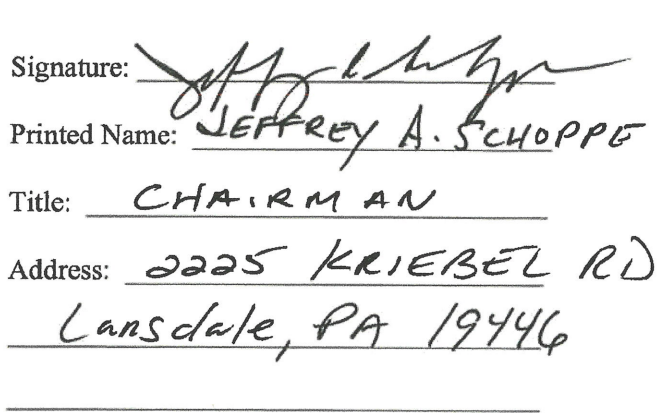 Signature:
Printed Name: JEFFREY A. SCHOPPE
Title: CHAIRMAN
Address: 2225 KRIEBEL RD
Lansdale, PA 19446